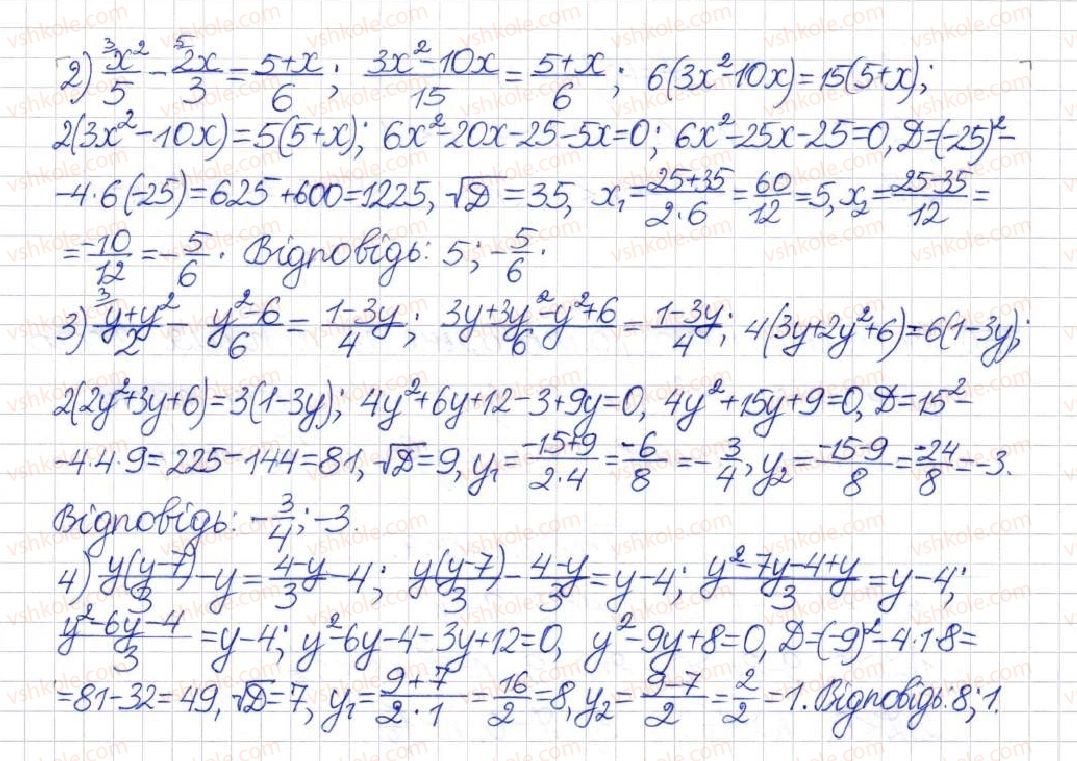 2) ³x²/5 - ⁵2x/3 = 5+x/6; 3x²-10x/15 = 5+x/6; 6(3x²-10x)=15(5+x);
2(3x²-10x)=5(5+x); 6x²-20x-25-5x=0; 6x²-25x-25=0, D=(-25)²-
-4·6(-25)=625+600=1225, √D=35, x₁=25+35/2·6=60/12=5, x₂=25-35/12=
=-10/12=-5/6. Відповідь: 5; -5/6.
3) ³y+y²/2 - y²-6/6 = 1-3y/4; 3y+3y²-y²+6/6 = 1-3y/4; 4(3y+2y²+6)=6(1-3y);
2(2y²+3y+6)=3(1-3y); 4y²+6y+12-3+9y=0, 4y²+15y+9=0, D=15²-
-4·4·9=225-144=81, √D=9, y₁=-15+9/2·4=-6/8=-3/4, y₂=-15-9/8=-24/8=-3.
Відповідь: -3/4; -3.
4) y(y-7)/3 - y = 4-y/3 - 4; y(y-7)/3 - 4-y/3 = y-4; y²-7y-4+y/3 = y-4;
y²-6y-4/3 = y-4; y²-6y-4-3y+12=0, y²-9y+8=0, D=(-9)²-4·1·8=
=81-32=49, √D=7, y₁=9+7/2·1=16/2=8, y₂=9-7/2=2/2=1. Відповідь: 8; 1.